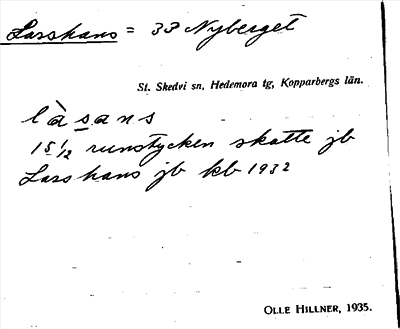 Larshans = 33 Nyberget
St. Skedvi sn, Hedemora tg, Kopparbergs län.
làsans
15 1/12 runstycken skatte jb
Larshans jb kb 1932
OLLE HILLNER, 1935.